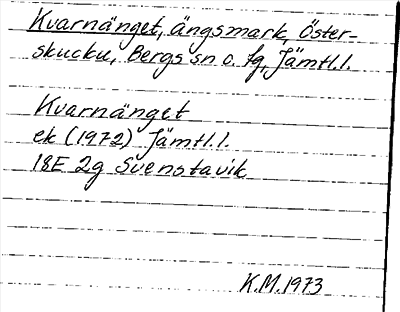 Kvarnänget, ängsmark, Öster-
skucku, Bergs sn o. tg, Jämtl.l.
Kvarnänget
ek (1972) Jämtl.l.
18E 2g Svenstavik
K.M. 1973